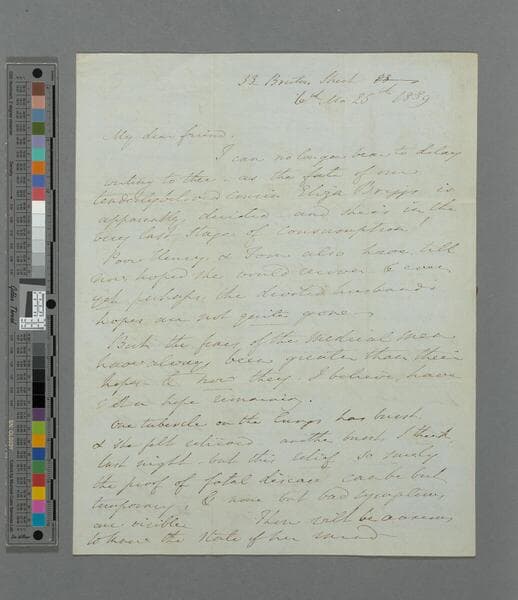 33 Bruton Street
6th Mo 25th 1839
My dear friend.
I can no longer bear to delay
writing to thee - as the fate of our
tenderly beloved cousin Eliza Briggs is
apparently decided and she is in the
very last stage of consumption!
Poor Henry, & Tom also have till
now hoped she would recover & even
yet perhaps the devoted husband's
hopes are not quite gone -
But the fears of the medical men
have always been greater than their
hopes & now they I believe have
hope remaining.
One tubercle on the lungs has burst
& she felt relieved another burst I think,
last night - but this relief so surely
the proof of fatal disease can be but
temporary, & none but bad symptoms
are visible. Thou wilt be anxious
to know the state of her mind